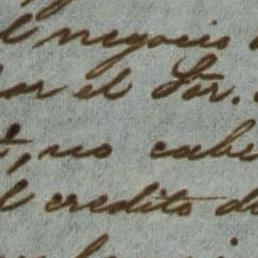 l negocio
or el Sor.
no cabe
l credito d